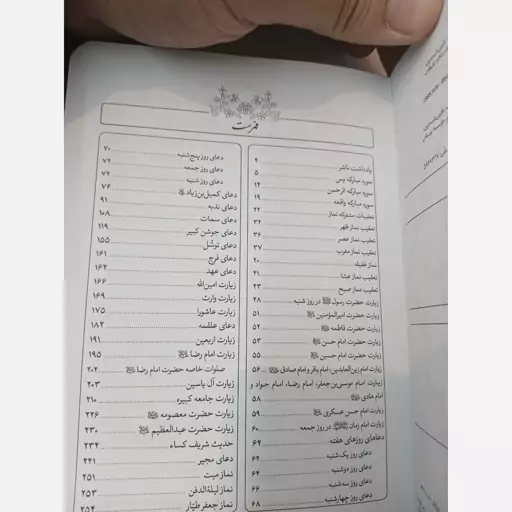 فهرست
یادداشت ناشر ۴
سوره مبارکه یس ۵
سوره مبارکه الرحمن ۱۴
سوره مبارکه واقعه ۱۹
تعقیبات مشترکه نماز ۲۲
تعقیب نماز ظهر ۳۲
تعقیب نماز عصر ۳۶
تعقیب نماز مغرب ۳۷
نماز غفیله ۴۰
تعقیب نماز عشا ۴۱
تعقیب نماز صبح ۴۳
زیارت حضرت رسول ﷺ در روز شنبه ۴۸
زیارت حضرت امیرالمؤمنین ۵۱
زیارت حضرت فاطمه ۵۲
زیارت حضرت امام حسن ۵۳
زیارت حضرت امام حسین ۵۵
زیارت امام زین‌العابدین، امام باقر و امام صادق ۵۶
زیارت امام موسی‌بن‌جعفر، امام رضا، امام جواد و
امام هادی ۵۸
زیارت امام حسن عسکری ۵۹
زیارت امام زمان در روز جمعه ۶۰
دعاهای روزهای هفته ۶۲
دعای روز یک‌شنبه ۶۲
دعای روز دوشنبه ۶۴
دعای روز سه‌شنبه ۶۶
دعای روز چهارشنبه ۶۸
دعای روز پنج‌شنبه ۷۰
دعای روز جمعه ۷۲
دعای روز شنبه ۷۴
دعای کمیل‌بن‌زیاد ۷۶
دعای ندبه ۹۱
دعای سمات ۱۰۸
دعای جوشن کبیر ۱۱۹
دعای توسّل ۱۵۵
دعای فرج ۱۶۱
دعای عهد ۱۶۲
زیارت امین‌الله ۱۶۶
زیارت وارث ۱۶۹
زیارت عاشورا ۱۷۵
دعای علقمه ۱۸۲
زیارت اربعین ۱۹۱
زیارت امام رضا ۱۹۵
صلوات خاصه حضرت امام رضا ۲۰۲
زیارت آل یاسین ۲۰۳
زیارت جامعه کبیره ۲۱۰
زیارت حضرت معصومه ۲۲۶
زیارت حضرت عبدالعظیم ۲۳۰
حدیث شریف کساء ۲۳۴
دعای مجیر ۲۴۱
نماز میت ۲۵۱
نماز لیلة‌الدفن ۲۵۳
نماز جعفر طیّار ۲۵۴